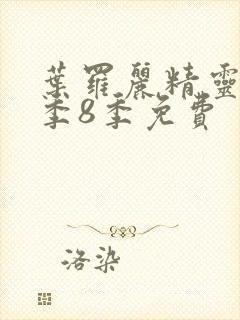 葉羅麗精靈
季8季免費
洛染